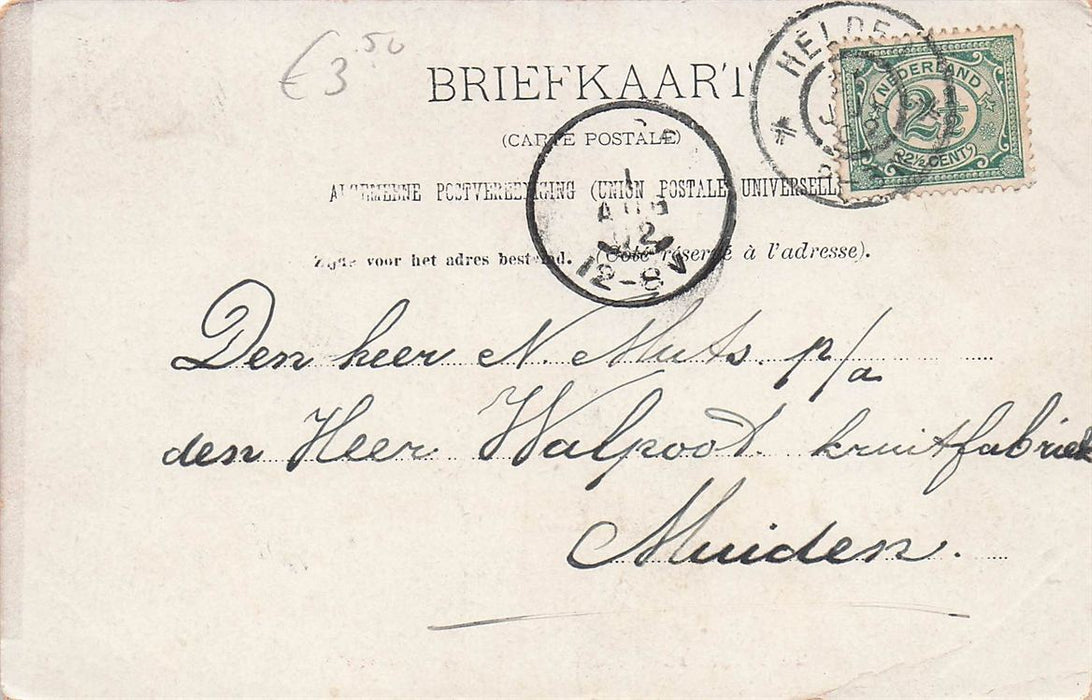 € 3.50
BRIEFKAART
(CARTE POSTALE)
ALGEMEENE POSTVEREENIGING (UNION POSTALE UNIVERSELLE
Zijde voor het adres bestemd. (Côté réservé à l'adresse).
HELDE
NEDERLAND
2½
2½ CENT
1
AUG
02
12-8V
Den heer N. Muts. p/a
den Heer Walpoot. kruitfabriek
Muiden.